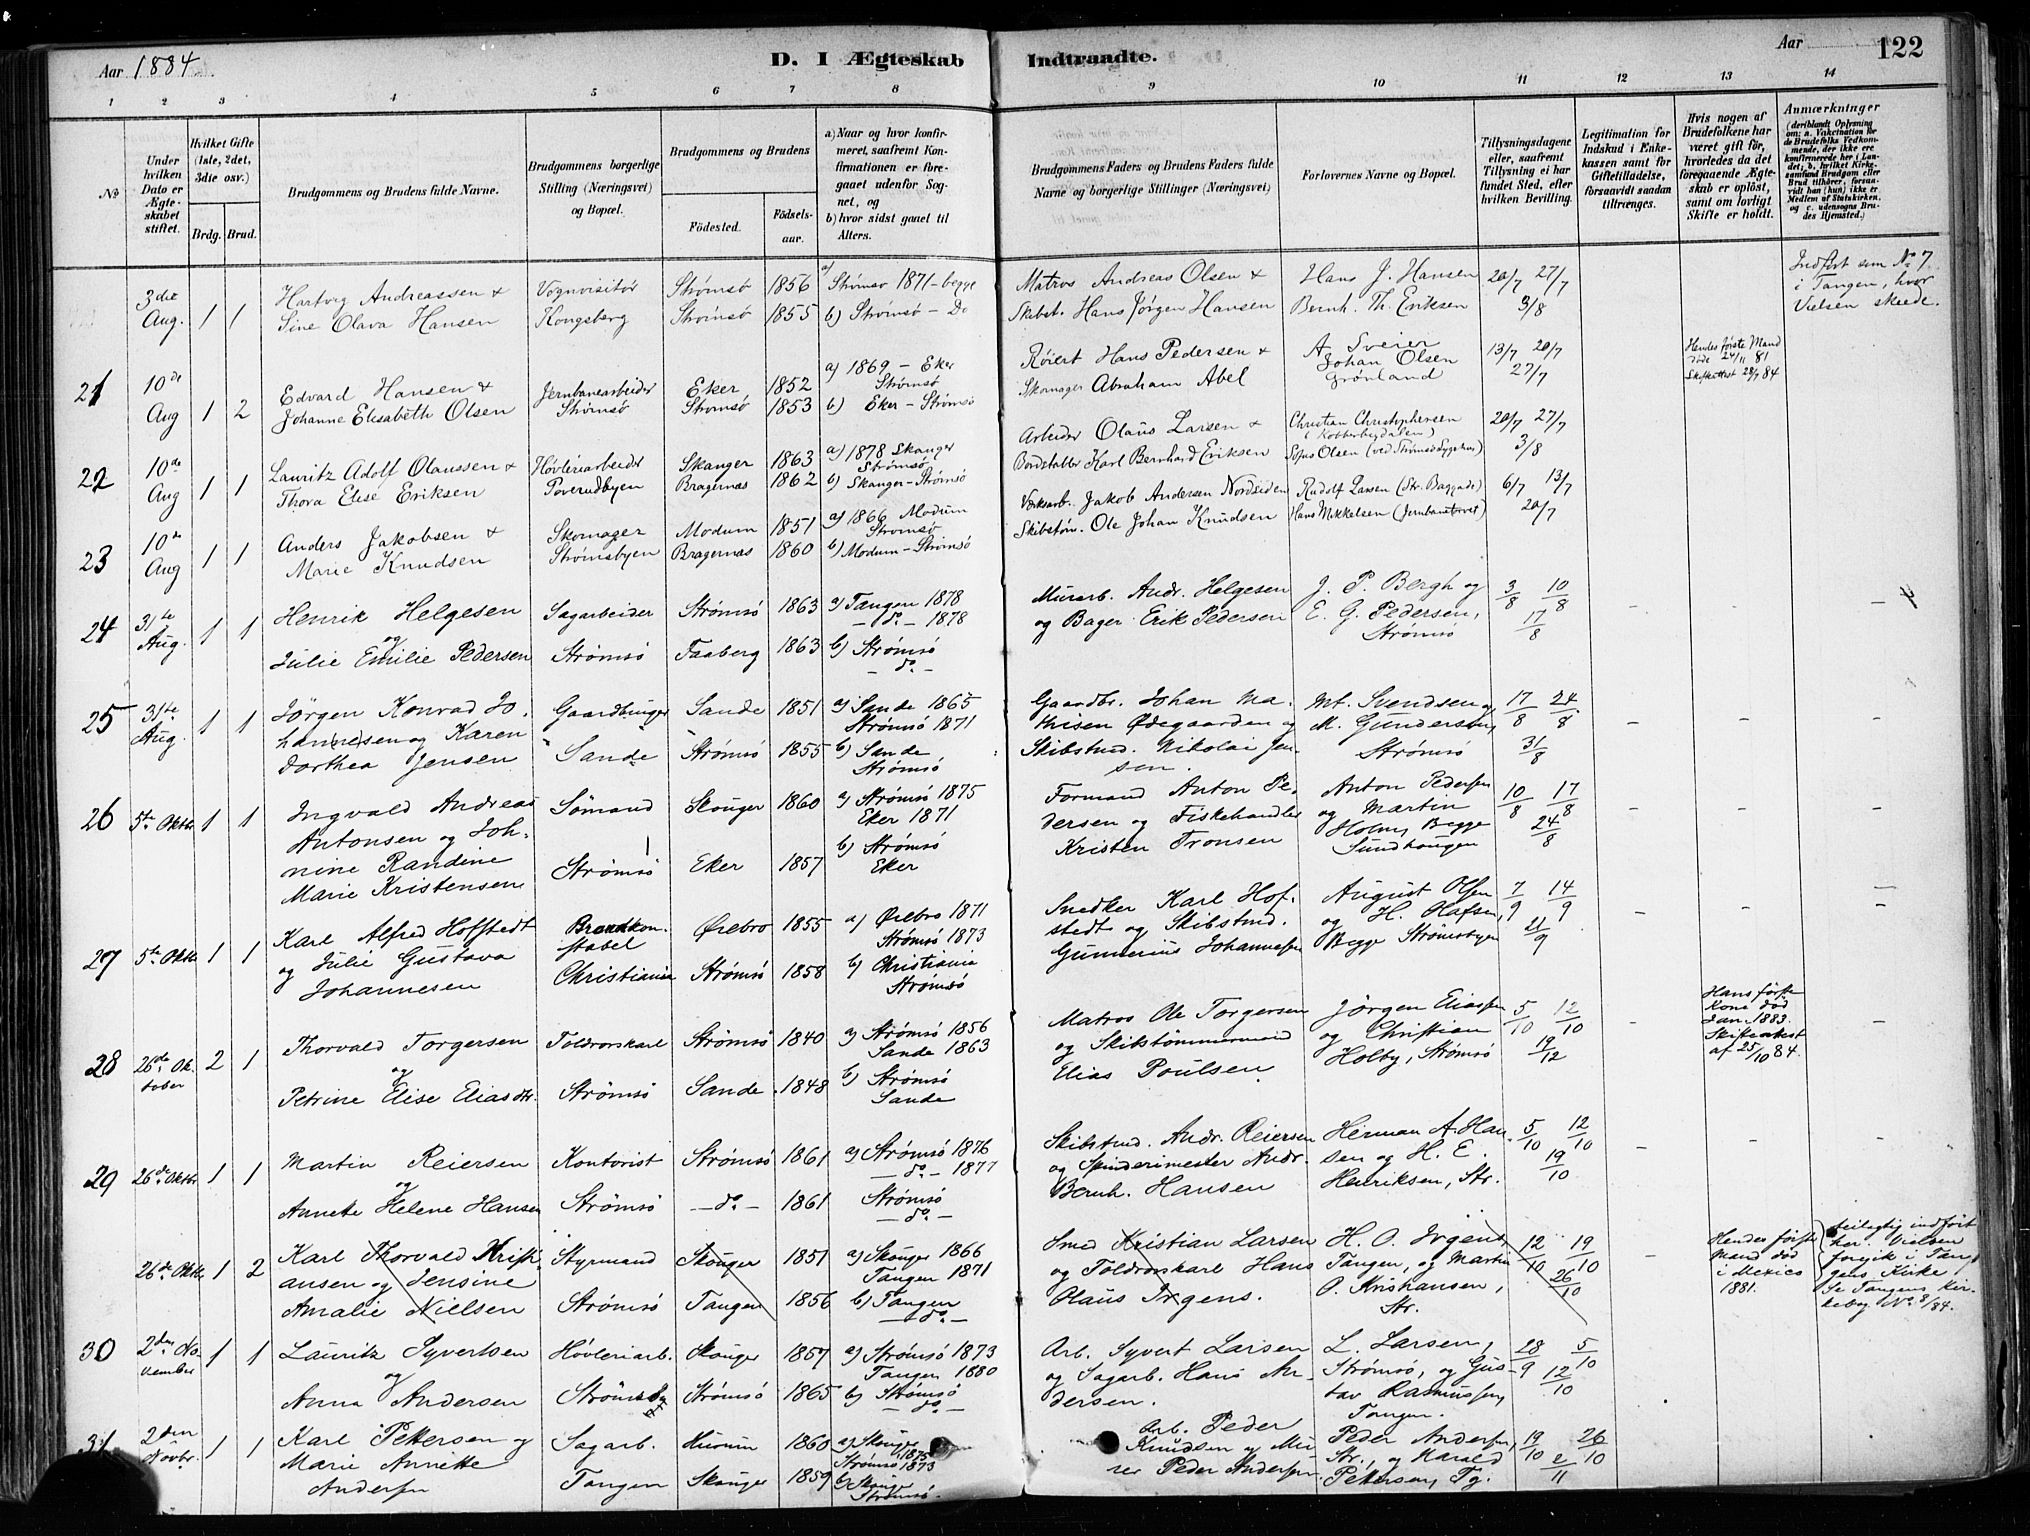 Aar 1884
D. I Ægteskab Indtraadte.
Aar 122
1 2 3 4 5 6 7 8 9 10 11 12 13 14
No
Under hvilken Dato er Ægteskabet stiftet.
Hvilket Gifte (1ste, 2det, 3die osv.)
Brdg. Brud.
Brudgommens og Brudens fulde Navne.
Brudgommens borgerlige Stilling (Næringsvei) og Bopæl.
Brudgommens og Brudens
Fødested.
Fødselsaar.
a) Naar og hvor konfirmeret, saafremt Konfirmationen er foregaaet udenfor Sognet, og
b) hvor sidst gaaet til Alters.
Brudgommens Faders og Brudens Faders fulde Navne og borgerlige Stillinger (Næringsvei)
Forlovernes Navne og Bopæl.
Tillysningsdagene eller, saafremt Tillysning ei har fundet Sted, efter hvilken Bevilling.
Legitimation for Indskud i Enkekassen samt for Giftetilladelse, forsaavidt saadan tiltrænges.
Hvis nogen af Brudefolkene har været gift før, hvorledes da det foregaaende Ægteskab er opløst, samt om lovligt Skifte er holdt.
Anmærkninger (deriblandt Oplysning om: a. Vakcination for de Brudefolks Vedkommende, der ikke ere konfirmerede her i Landet; b. hvilket Kirkesamfund Brudgom eller Brud tilhører, forsaavidt han (hun) ikke er Medlem af Statskirken, og c. udensogns Brudes Hjemsted.)
3die Aug. 1 1 Hartvig Andreassen & Sine Olava Hansen Vognvisitör Kongsberg Strømsö 1856 Strömsö 1855 a) Strömsö 1871 - begge b) Strömsö - Do Matros Andreas Olsen & Skibst. Hans Jörgen Hansen Hans J. Hansen Bernh. Th. Eriksen 20/7 27/7 3/8 Indfört som No 7. i Tangen, hvor Vielsen skeede.
21 10de Aug 1 2 Edvard Hansen & Johanne Elisabeth Olsen Jernbanearbeider Strømsö Eker 1852 Strömsö 1853 a) 1869 - Eker Strømsö b) Eker - Strømsö Röiert Hans Pedersen & Skomager Abraham Abel A. Sveier Johan Olsen Grønland 13/7 20/7 27/7 Hendes første Mand døde 24/11 81 Skifteattest 28/7 84
22 10de Aug 1 1 Lauritz Adolf Olaussen & Thora Elise Eriksen Høvleriarbeider Poverudbyen Skauger 1863 Bragernæs 1862 a) 1878 Skauger Strömsö b) Skauger - Strömsö Arbeider Olaus Larsen & Bordstabler Karl Bernhard Eriksen Christian Christophersen (Kobberbergdalen) Sofus Olsen (ved Strømsø Sygehus) 20/7 27/7 3/8
23 10de Aug 1 1 Anders Jakobsen & Marie Knudsen Skomager Strömsbyen Modum 1851 Bragernæs 1860 a) 1866 Modum Strömsö b) Modum - Strömsö Værksarb. Jakob Andersen Nordsiden Skibstøm. Ole Johan Knudsen Rudolf Larsen (Str. Baggade) Hans Mikkelsen (Jernbanetorvet) 6/7 13/7 20/7
24 31te Aug. 1 1 Henrik Helgesen og Julie Emilie Pedersen Sagarbeider Strömsö Strömsö 1863 Faaberg 1863 a) Tangen 1878 - do - 1878 b) Strömsö - do - Murarb. Andr. Helgesen og Bager Erik Pedersen J. P. Bergh og E. G. Pedersen, Strömsö 3/8 10/8 17/8
25 31te Aug. 1 1 Jörgen Konrad Johannesen og Karen Dorthea Jensen Gaardbruger Sande Sande 1851 Strömsö 1855 a) Sande 1865 Strömsö 1871 b) Sande Strömsö Gaardbr. Johan Mathisen Ödegaarden og Skibstmd. Nikolai Jensen. Mt. Svendsen og M. Gundersen, Strömsö 17/8 24/8 31/8
26 5te Oktbr. 1 1 Ingvald Andreas Antonsen og Johnine Randine Marie Kristensen Sömand Strömsö Skouger 1860 Eker 1857 a) Strömsö 1875 Eker 1871 b) Strömsö Eker Formand Anton Pedersen og Fiskehandler Kristen Tronsen Anton Pedersen og Martin Holm, Begge Sundhaugen 10/8 17/8 24/8
27 5te Oktbr. 1 1 Karl Alfred Hofstedt og Julie Gustava Johannesen Brandkonstabel Christiania Örebro 1855 Strömsö 1858 a) Örebro 1871 Strömsö 1873 b) Christiania Strömsö Snedker Karl Hofstedt og Skibstmd. Gunnerius Johannessen August Olsen og H. Olafsen, Begge Strömsbyen 7/9 14/9 21/9
28 26de Oktober 2 1 Thorvald Torgersen og Petrine Elise Eliasdtr. Toldrorskarl Strömsö Strömsö 1840 Sande 1848 a) Strömsö 1856 Sande 1863 b) Strömsö Sande Matros Ole Torgersen og Skibstömmermand Elias Poulsen Jörgen Eliassen og Christian Holby, Strömsö 5/10 12/10 19/12 Hans første Kone død Jan. 1883. Skifteattest af 25/10 84.
29 26de Oktbr. 1 1 Martin Reiersen og Annette Helene Hansen Kontorist Strömsö Strömsö 1861 - do - 1861 a) Strömsö 1876 - do - 1877 Strömsö - do - Skibstmd. Andr. Reiersen og Spinderimester Andr. Bernh. Hansen Herman A. Hansen og H. E. Henriksen, Str. 5/10 12/10 19/10
26de Oktbr. 1 2 Karl Thorvald Kristiansen og Jensine Amalie Nielsen Styrmand Strömsö Skouger 1851 Tangen 1856 a) Skouger 1866 Tangen 1871 b) Tangen - do - Smed Kristian Larsen og Toldrorskarl Hans Olaus Irgens. H. O. Irgens Tangen, og Martin O. Kristiansen, Str. 12/10 19/10 26/10 Hendes første Mand død i Mexico 1881. feilagtig indført her. Vielsen foregik i Tangens Kirke Se Tangens Kirkebog No. 8/84.
30 2den November 1 1 Lauritz Syvertsen og Anna Andersen Hövleriarb. Strömsby Skouger 1857 Strömsö 1865 a) Strömsö 1873 Tangen 1880 b) Strömsö - do - Arb. Syvert Larsen og Sagarb. Hans Andersen. L. Larsen, Strömsö, og Gustav Rasmussen, Tangen. 28/9 5/10 12/10
31 2den Novbr. 1 1 Karl Pettersen og Marie Annette Andersen Sagarb. Tangen Hurum 1860 Skouger 1859 a) Skouger 1875 Strömsö 1873 b) Skouger Strömsö. Arb. Peder Knudsen og Murer Peder Andersen Peder Andersen, Str., og Harald Pettersen, Tg. 19/10 26/10 2/11